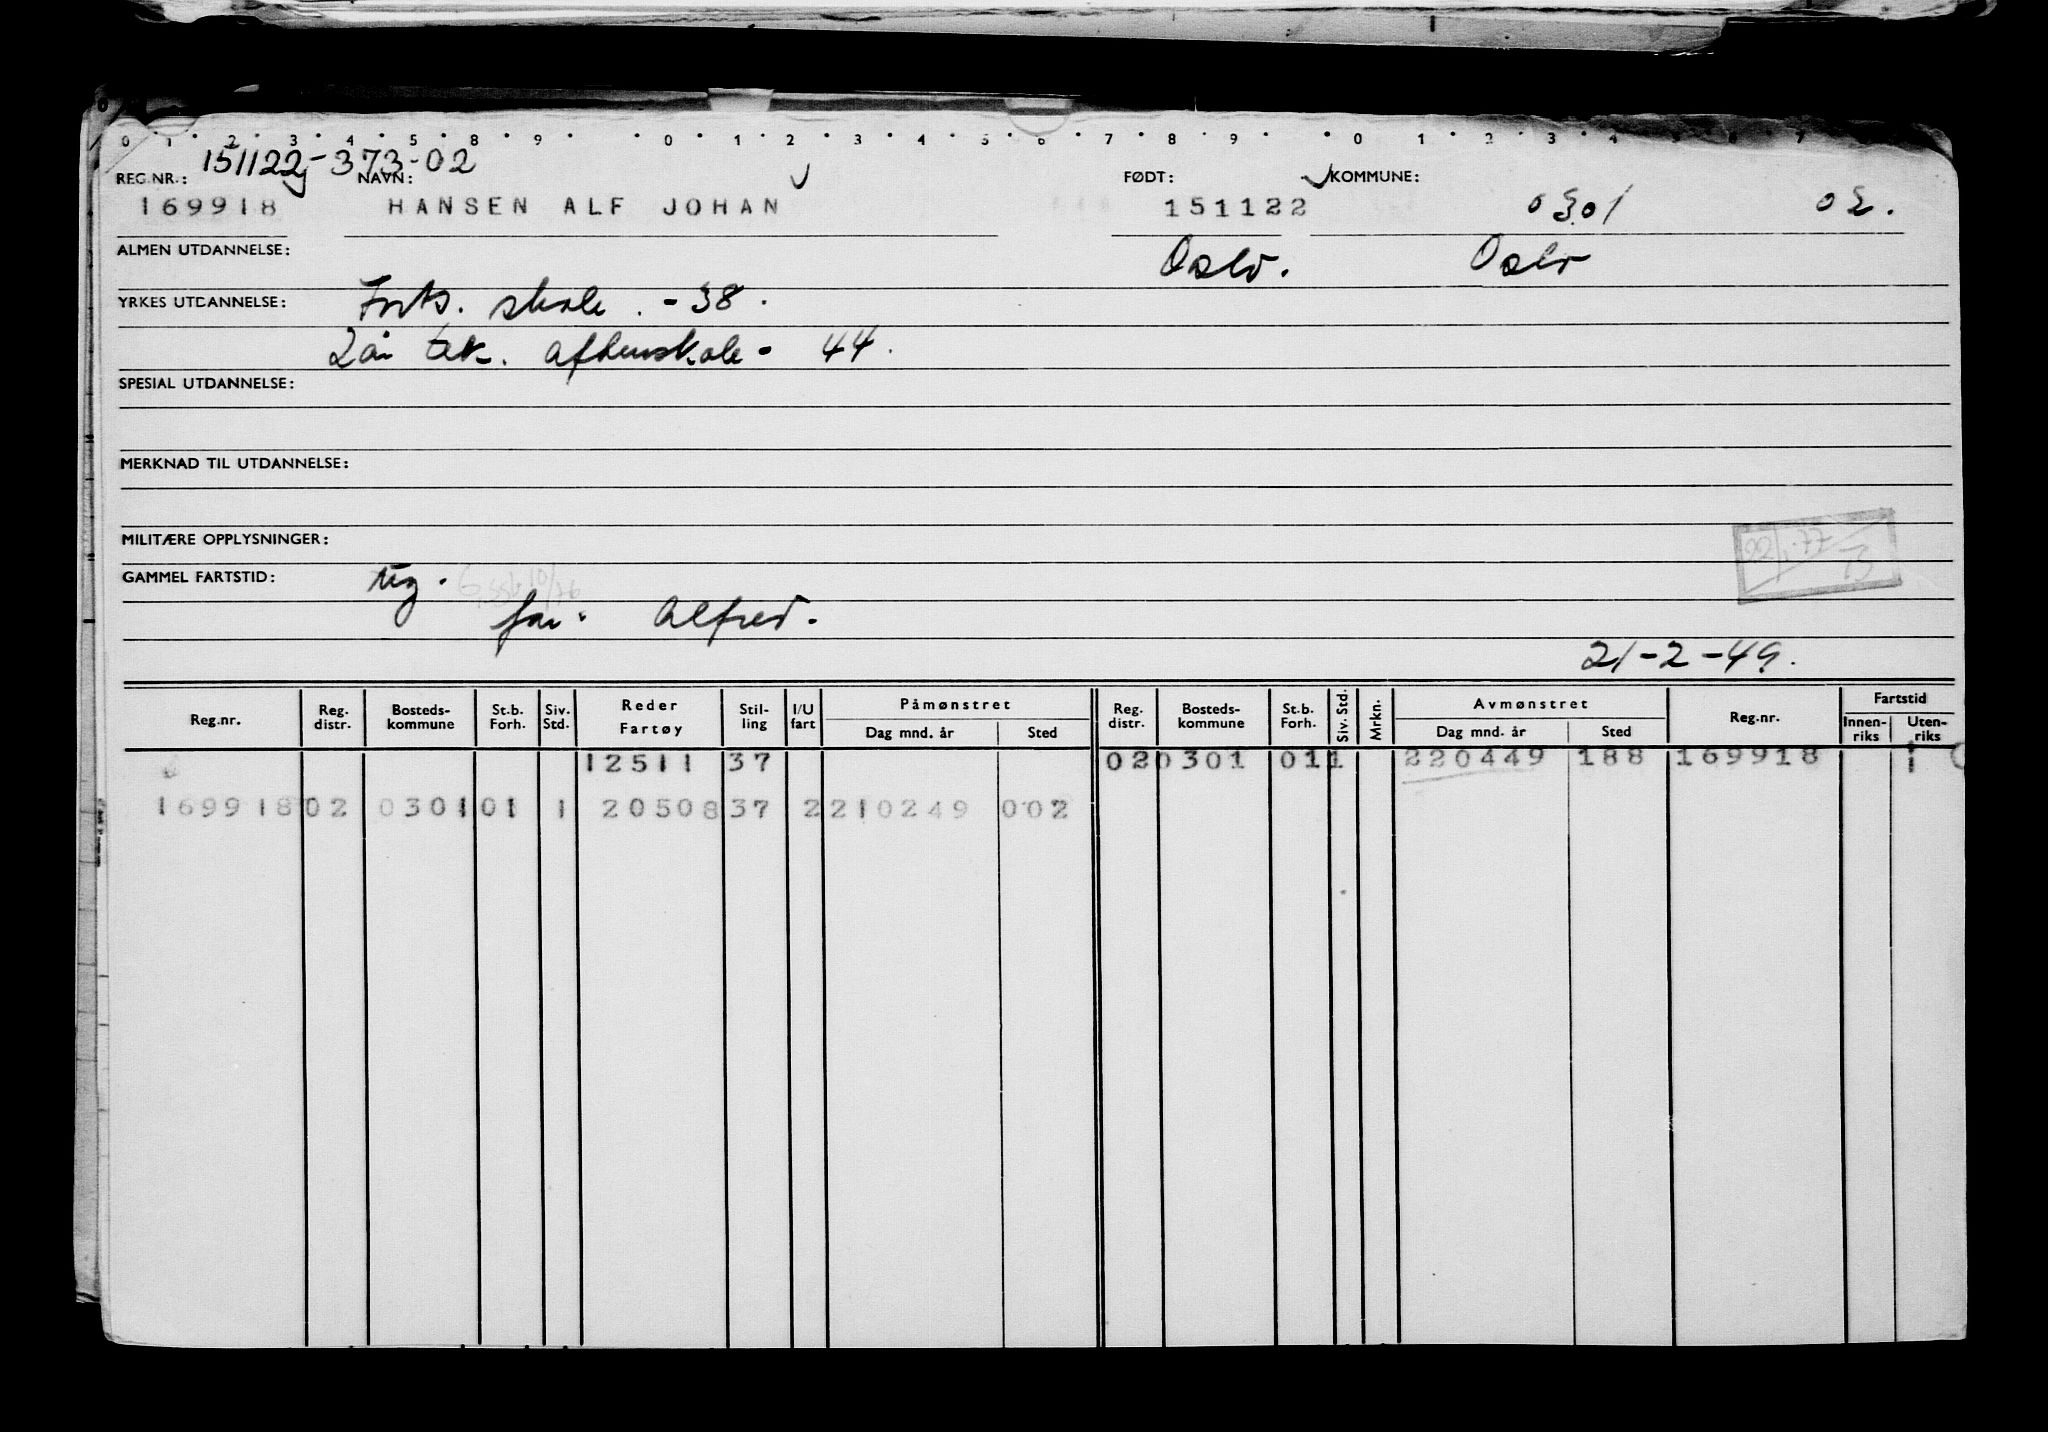 0 1 2 3 4 5 8 9 0 1 2 3 4 5 6 7 8 9 0 1 2 3 4 7
151122-373-02
REG.NR.: NAVN: FØDT: KOMMUNE:
169918 HANSEN ALF JOHAN 151122 0301 02.
ALMEN UTDANNELSE: Oslo. Oslo
YRKES UTDANNELSE: Forts. skole. -38.
2 år tek. aftenskole - 44.
SPESIAL UTDANNELSE:
MERKNAD TIL UTDANNELSE:
MILITÆRE OPPLYSNINGER:
22/1.77
GAMMEL FARTSTID:
far: Alfred.
21-2-49.
Reg.nr. Reg. distr. Bosteds-kommune St.b. Forh. Siv. Std. Reder Fartøy Stil-ling I/U fart Påmønstret Dag mnd. år Sted Reg. distr. Bosteds-kommune St.b. Forh. Siv. Std. Mrkn. Avmønstret Dag mnd. år Sted Reg.nr. Fartstid Innen-riks Uten-riks
12511 37 02 0301 01 1 220449 188 169918 1
169918 02 0301 01 1 20508 37 2 210249 002